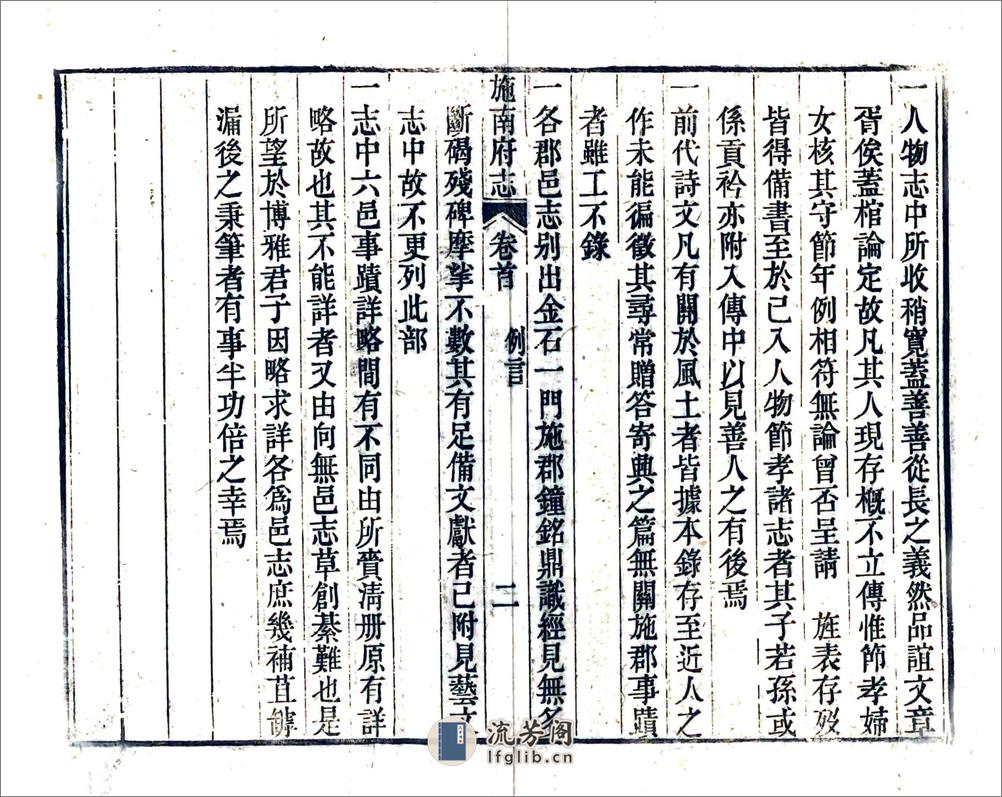 一人物志中所收稍寬蓋善善從長之義然品誼文章
胥俟蓋棺論定故凡其人現存概不立傳惟節孝婦
女核其守節年例相符無論曾否呈請　旌表存歿
皆得備書至於已入人物節孝諸志者其子若孫或
係貢衿亦附入傳中以見善人之有後焉
一前代詩文凡有關於風土者皆據本錄存至近人之
作未能徧徵其尋常贈答寄興之篇無關施郡事蹟
者雖工不錄
一各郡邑志别出金石一門施郡鐘銘鼎識經見無多
施南府志　卷首　例言　二
斷碣殘碑摩挲不數其有足備文獻者已附見藝文
志中故不更列此部
一志中六邑事蹟詳略間有不同由所賫淸册原有詳
略故也其不能詳者又由向無邑志草創綦難也是
所望於博雅君子因略求詳各爲邑志庶幾補苴罅
漏後之秉筆者有事半功倍之幸焉
流芳阁
lfglib.cn